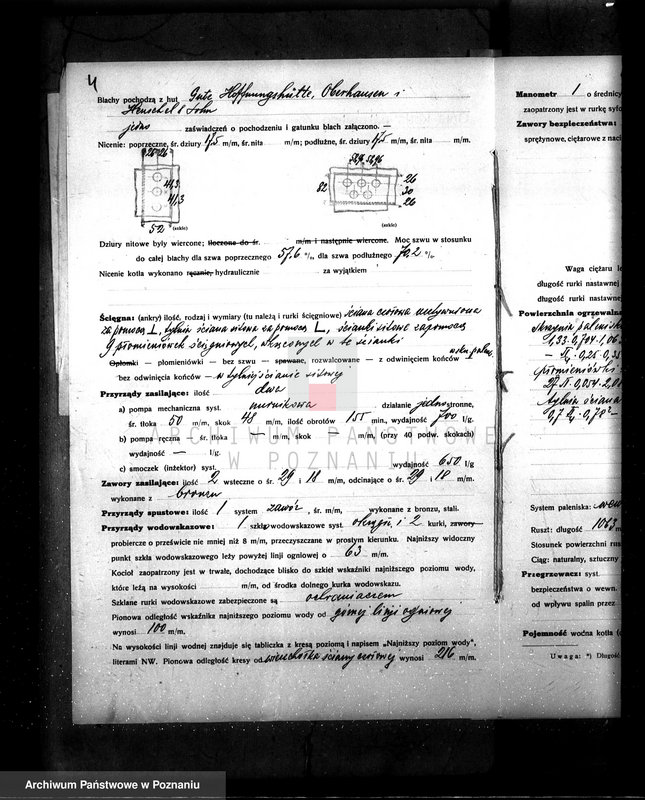 4
Blachy pochodzą z hut Gute Hoffnungshütte, Oberhausen i
Henschel & Sohn
jedno zaświadczeń o pochodzeniu i gatunku blach załączono. —
Nicenie: poprzeczne, śr. dziury 17,5 m/m, śr. nita m/m; podłużne, śr. dziury 17,5 m/m, śr. nita m/m.
26 26
41,3
41,3
52 (szkic)
82
26
30
26
(szkic)
Dziury nitowe były wiercone; tłoczona do śr. m/m i następnie wiercone. Moc szwu w stosunku
do całej blachy dla szwa poprzecznego 57.6 %, dla szwa podłużnego 70.2 %.
Nicenie kotła wykonano ręcznie, hydraulicznie za wyjątkiem
Ścięgna: (ankry) ilość, rodzaj i wymiary (tu należą i rurki ścięgniowe) ściana czołowa usztywniona
za pomocą ⊥, tylnia ściana sitowa za pomocą L, ścianki sitowe zapomocą
9 płomieniówek ścięgniowych, wkręconych w te ścianki
Opłomki — płomieniówki — bez szwu — spawane, rozwalcowane — z odwinięciem końców w skn. palen.
bez odwinięcia końców — w tylniej ścianie sitowej
Przyrządy zasilające: ilość dwa
a) pompa mechaniczna syst. nurnikowa działanie jednostronne,
śr. tłoka 50 m/m, skok 48 m/m, ilość obrotów 155 min., wydajność 700 l/g.
b) pompa ręczna — śr. tłoka — m/m, skok — m/m, (przy 40 podw. skokach)
wydajność — l/g.
c) smoczek (inżektor) syst. wydajność 650 l/g
Zawory zasilające: ilość 2 wsteczne o śr. 29 i 18 m/m, odcinające o śr. 29 i 18 m/m.
wykonane z bronzu
Przyrządy spustowe: ilość 1 system zawór, śr. m/m, wykonane z bronzu, stali.
Przyrządy wodowskazowe: 1 szkło wodowskazowe syst. okrągłe i 2 kurki, zawory
probiercze o prześwicie nie mniej niż 8 m/m, przeczyszczane w prostym kierunku. Najniższy widoczny
punkt szkła wodowskazowego leży powyżej linji ogniowej o 63 m/m.
Kocioł zaopatrzony jest w trwałe, dochodzące blisko do szkieł wskaźniki najniższego poziomu wody,
które leżą na wysokości m/m, od środka dolnego kurka wodowskazu.
Szklane rurki wodowskazowe zabezpieczone są ochraniaczem
Pionowa odległość wskaźnika najniższego poziomu wody od górnej linji ogniowej
wynosi 100 m/m.
Na wysokości linji wodnej znajduje się tabliczka z kresą poziomą i napisem „Najniższy poziom wody",
literami NW. Pionowa odległość kresy od wierzchołka ściany czołowej wynosi 216 m/m.
Manometr 1 o średnicy
zaopatrzony jest w rurkę syfo
Zawory bezpieczeństwa:
sprężynowe, ciężarowe z naci
Waga ciężaru
długość rurki nastawnej
długość rurki nastawnej
Powierzchnia ogrzewalna
Skrzynia paleniska
1,33·0,704·1,06
Płomieniówki
tylnia ściana
System paleniska:
Ruszt: długość 1063 m
Stosunek powierzchni rus
Ciąg: naturalny, sztuczny
Przegrzewacz: syst
bezpieczeństwa o wewn.
od wpływu spalin przez
Pojemność wodna kotła (
Uwaga: *) Długość
ARCHIWUM PAŃSTWOWE
W POZNANIU
Archiwum Państwowe w Poznaniu